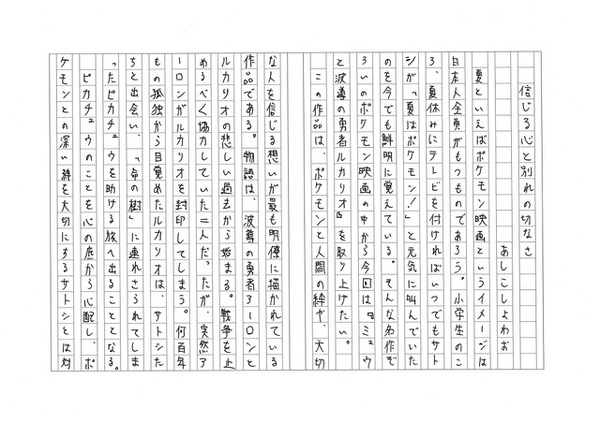 信じる心と別れの切なさ
あしこしょわお
夏といえばポケモン映画というイメージは
日本人全員がもつものであろう。小学生のこ
ろ、夏休みにテレビを付ければいつでもサト
シが「夏はポケモン！」と元気に叫んでいた
のを今でも鮮明に覚えている。そんな名作ぞ
ろいのポケモン映画の中から今回は『ミュウ
と波導の勇者ルカリオ』を取り上げたい。
この作品は、ポケモンと人間の絆や、大切
な人を信じる想いが最も明瞭に描かれている
作品である。物語は、波導の勇者アーロンと
ルカリオの悲しい過去から始まる。戦争を止
めるべく協力していた二人だったが、突然ア
ーロンがルカリオを封印してしまう。何百年
もの孤独から目覚めたルカリオは、サトシた
ちと出会い、「命の樹」に連れさられてしま
ったピカチュウを助ける旅へ出ることとなる。
ピカチュウのことを心の底から心配し、ポ
ケモンとの深い絆を大切にするサトシとは対